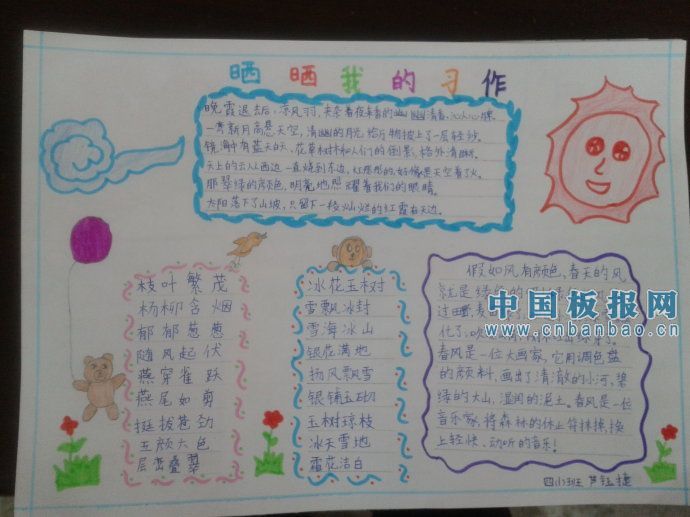 晒晒我的习作
晚霞退去后,凉风习习,夹杂着夜来香的幽幽清香,沁人心脾
一弯新月高悬天空,清幽的月光给万物披上了一层轻纱。
镜海中有蓝天白天,花草树木和人们的倒影,格外清晰。
天上的云从西边一直烧到东边,红彤彤的,好像是天空着了火。
那翠绿的颜色,明亮地照耀着我们的眼睛。
太阳落下了山坡,只留下一段灿烂的红霞在天边。
枝叶繁茂
杨柳含烟
郁郁葱葱
随风起伏
燕穿雀跃
燕尾如剪
挺拔苍劲
五颜六色
层峦叠翠
冰花玉树
雪飘冰封
雪海冰山
银花满地
扬风飘雪
银铺玉砌
玉树琼枝
冰天雪地
霜花洁白
假如风有颜色,春天的风
就是绿色的
过田野,麦
化了,吹
春风是一位大画家,它用调色盘
的颜料,画出了清澈的小河,碧
绿的大山,湿润的泥土。春风是一位
音乐家,将森林的休止符抹掉,换
上轻快、动听的音乐!
四(1)班 芦钰捷
中国板报网
www.cnbanbao.cn